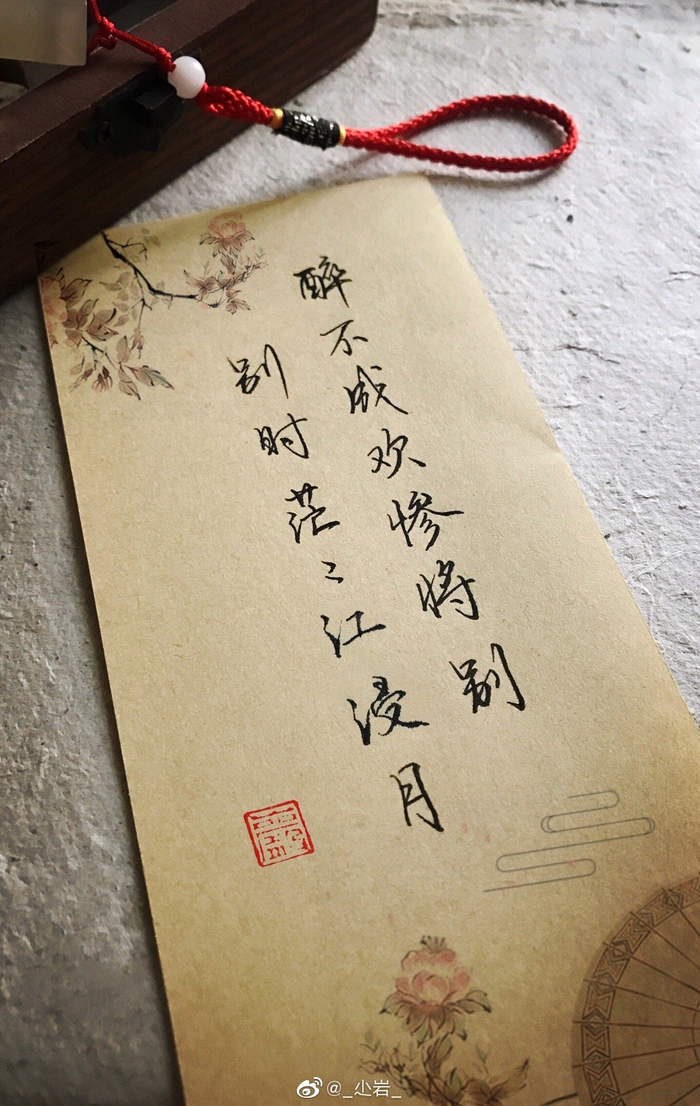 醉不成欢惨将别
别时茫〻江浸月
@_小岩_